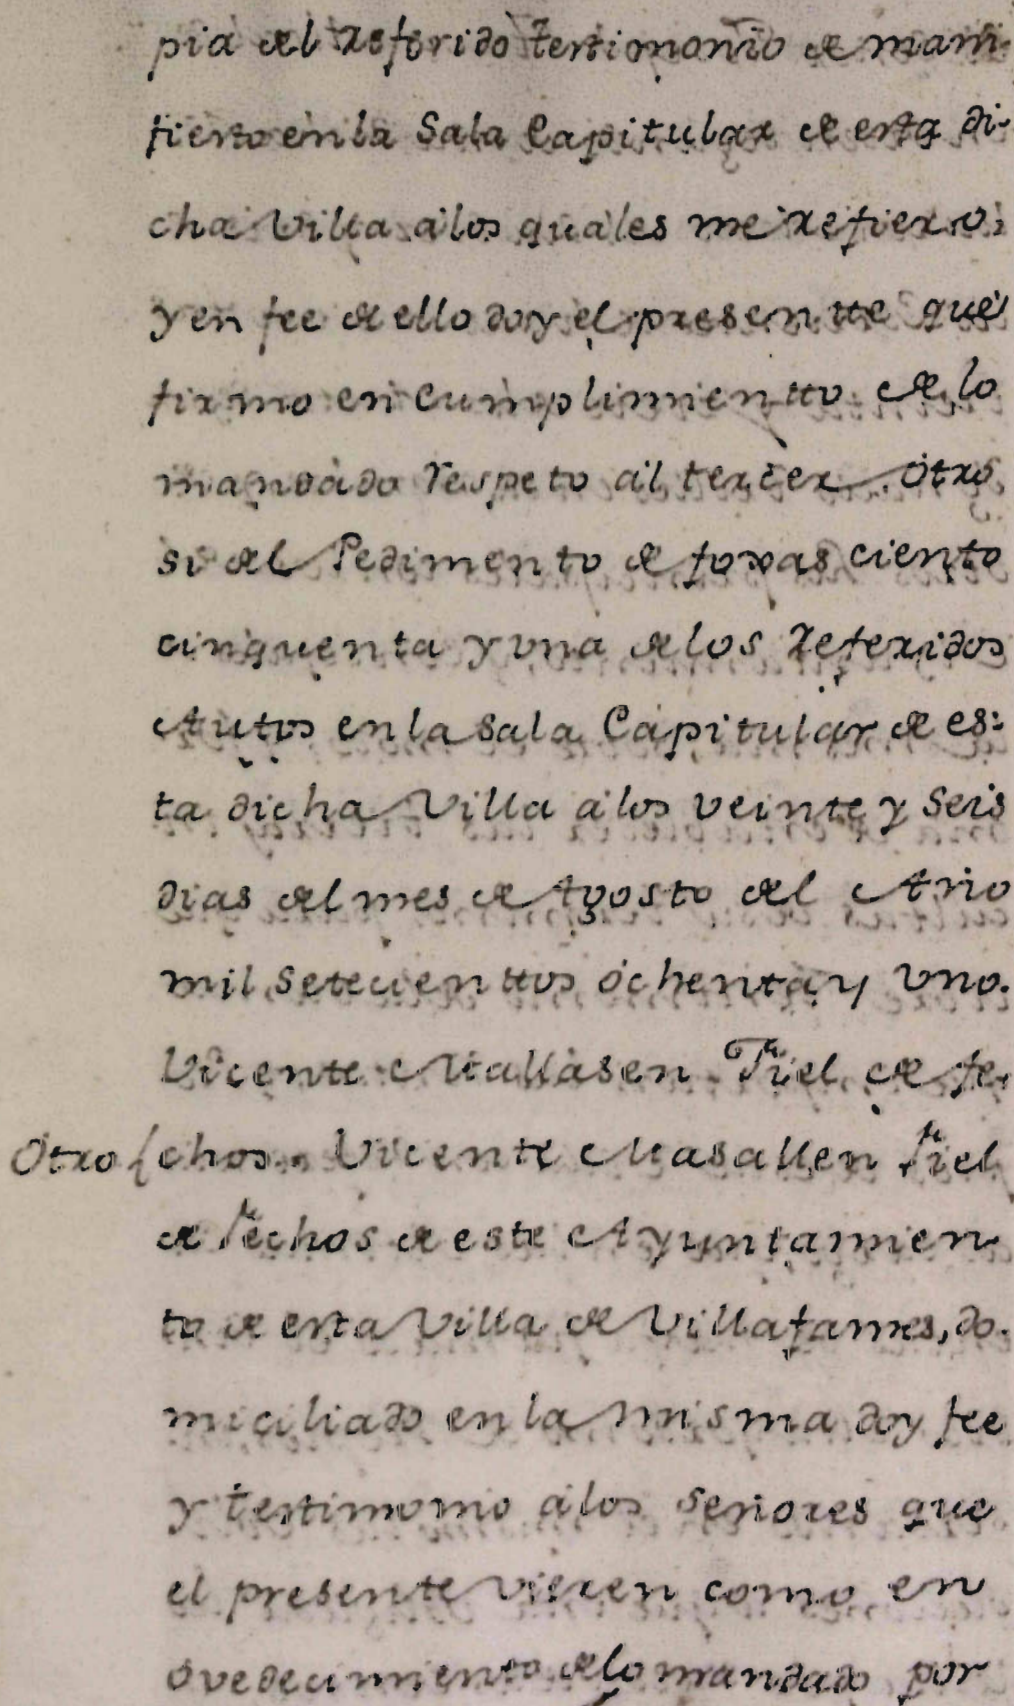 pia del referido testimonio de mani-
fiesto en la Sala Capitular de esta di-
cha Villa a los quales me refiero,
y en fee de ello doy el presentte que
firmo en cumplimientto de lo
mandado respeto al tercer otro
si del Pedimento de foxas ciento
cinquenta y una de los referidos
Autos en la Sala Capitular de es-
ta dicha Villa a los veinte y seis
dias del mes de Agosto del Año
mil setecienttos ochenta y uno.
Vicente Mallasen Fiel de fe-
Otro chos. Vicente Masallen Fiel
de Fechos de este Ayuntamien-
to de esta Villa de Villafames, do-
miciliado en la misma doy fee
y testimonio a los señores que
el presente vieren como en
ovedecimiento de lo mandado por